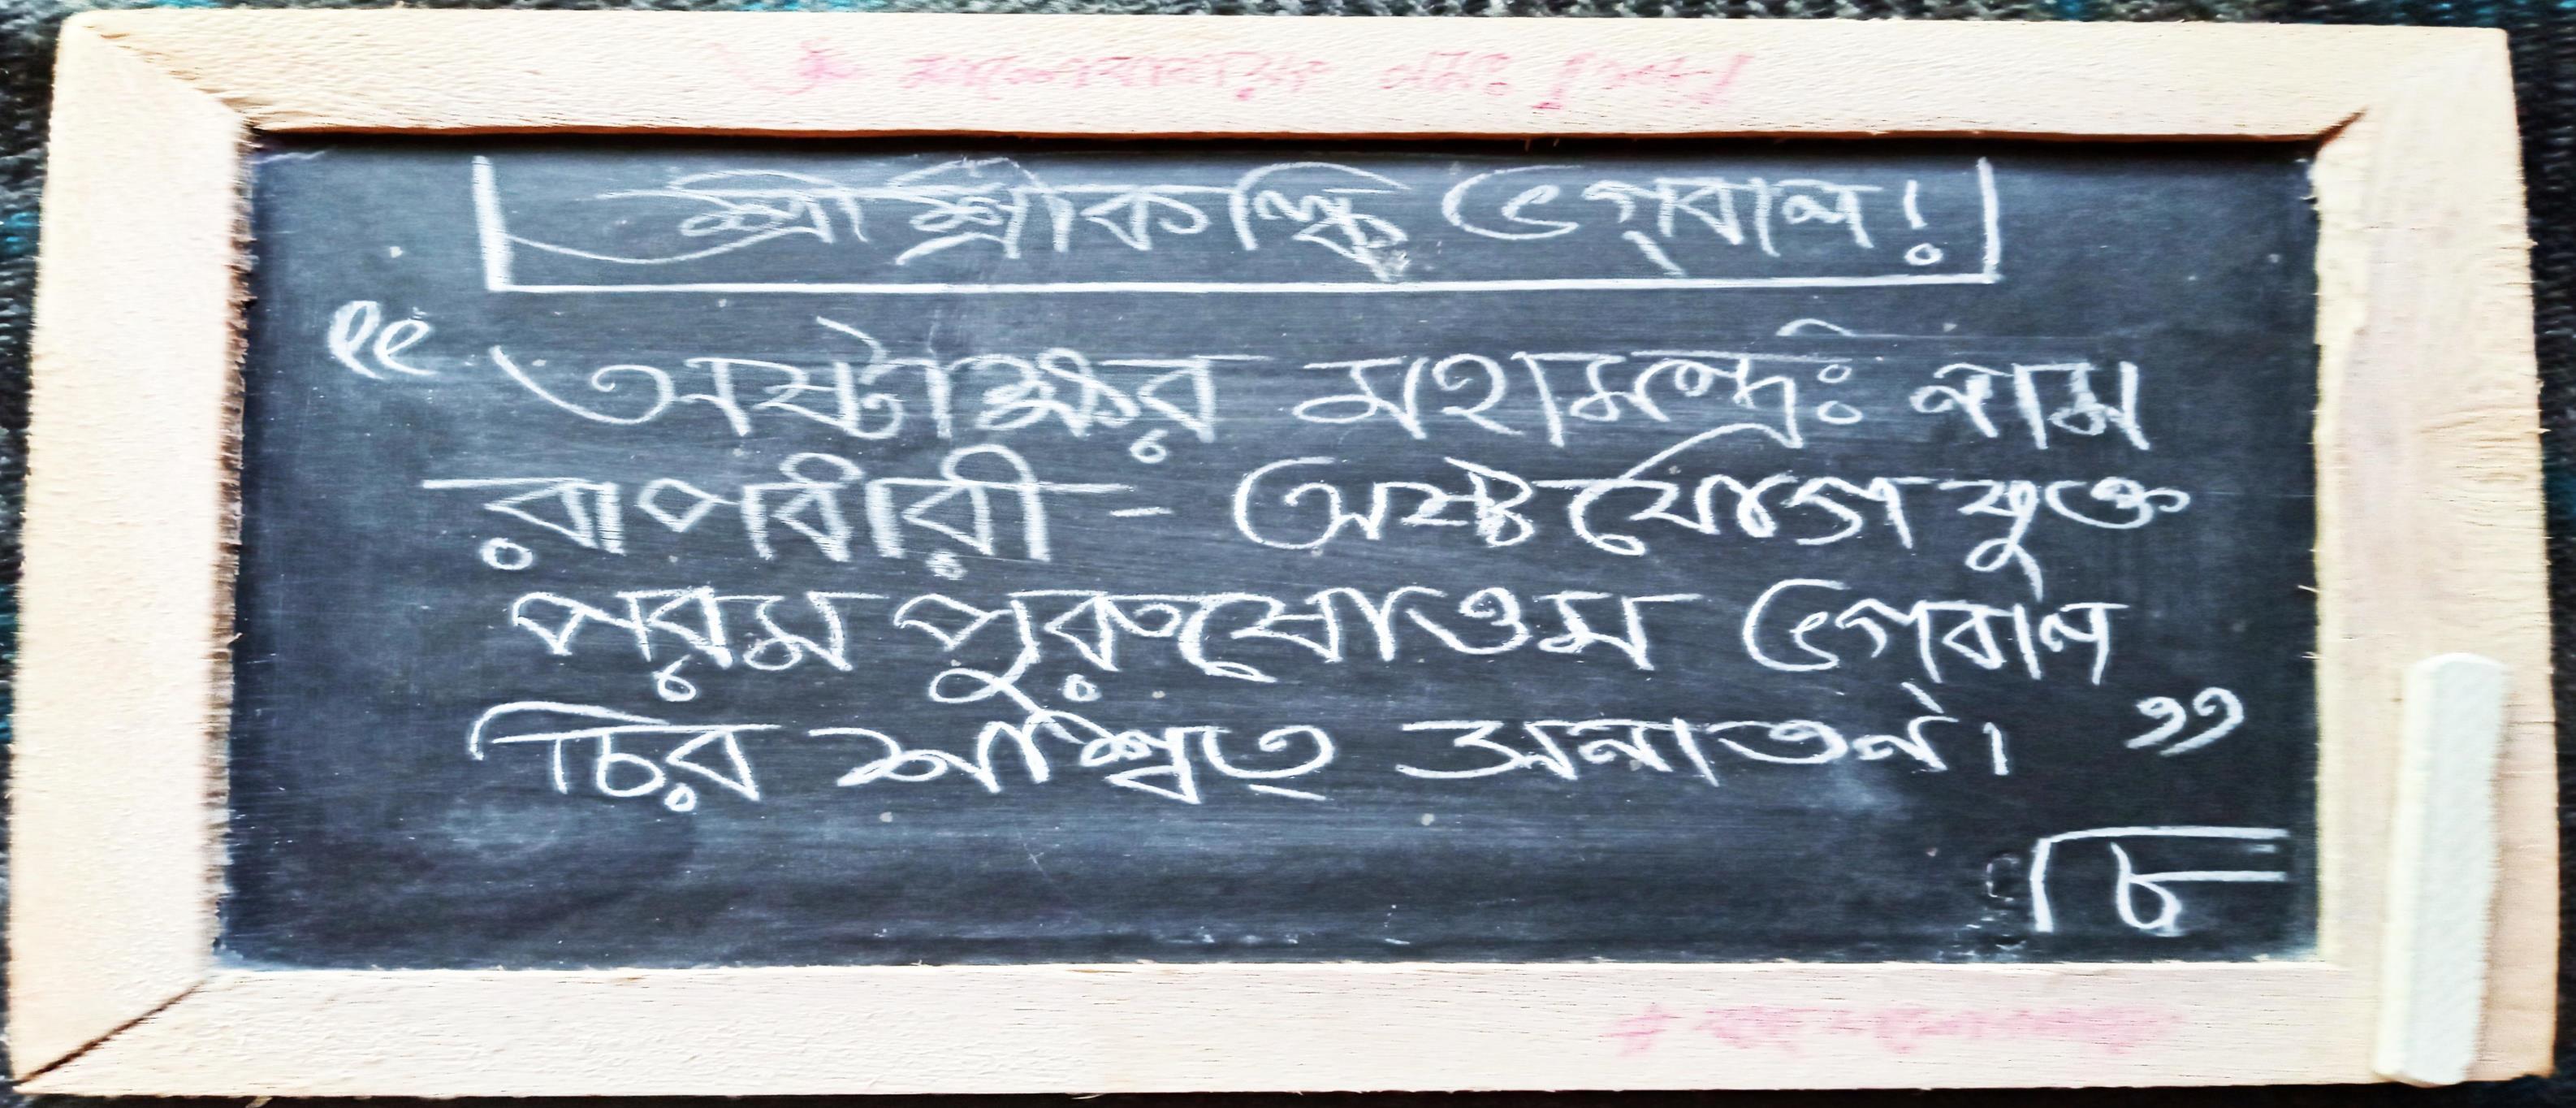 শ্রীশ্রীকল্কি ভগবান!
“অষ্টাক্ষর মহামন্ত্রঃ নাম
রাপধারী - অষ্টযোগে যুক্ত
পরম পুরুষোত্তম ভগবান
চির শাশ্বত্ সনাতন। ”
চি